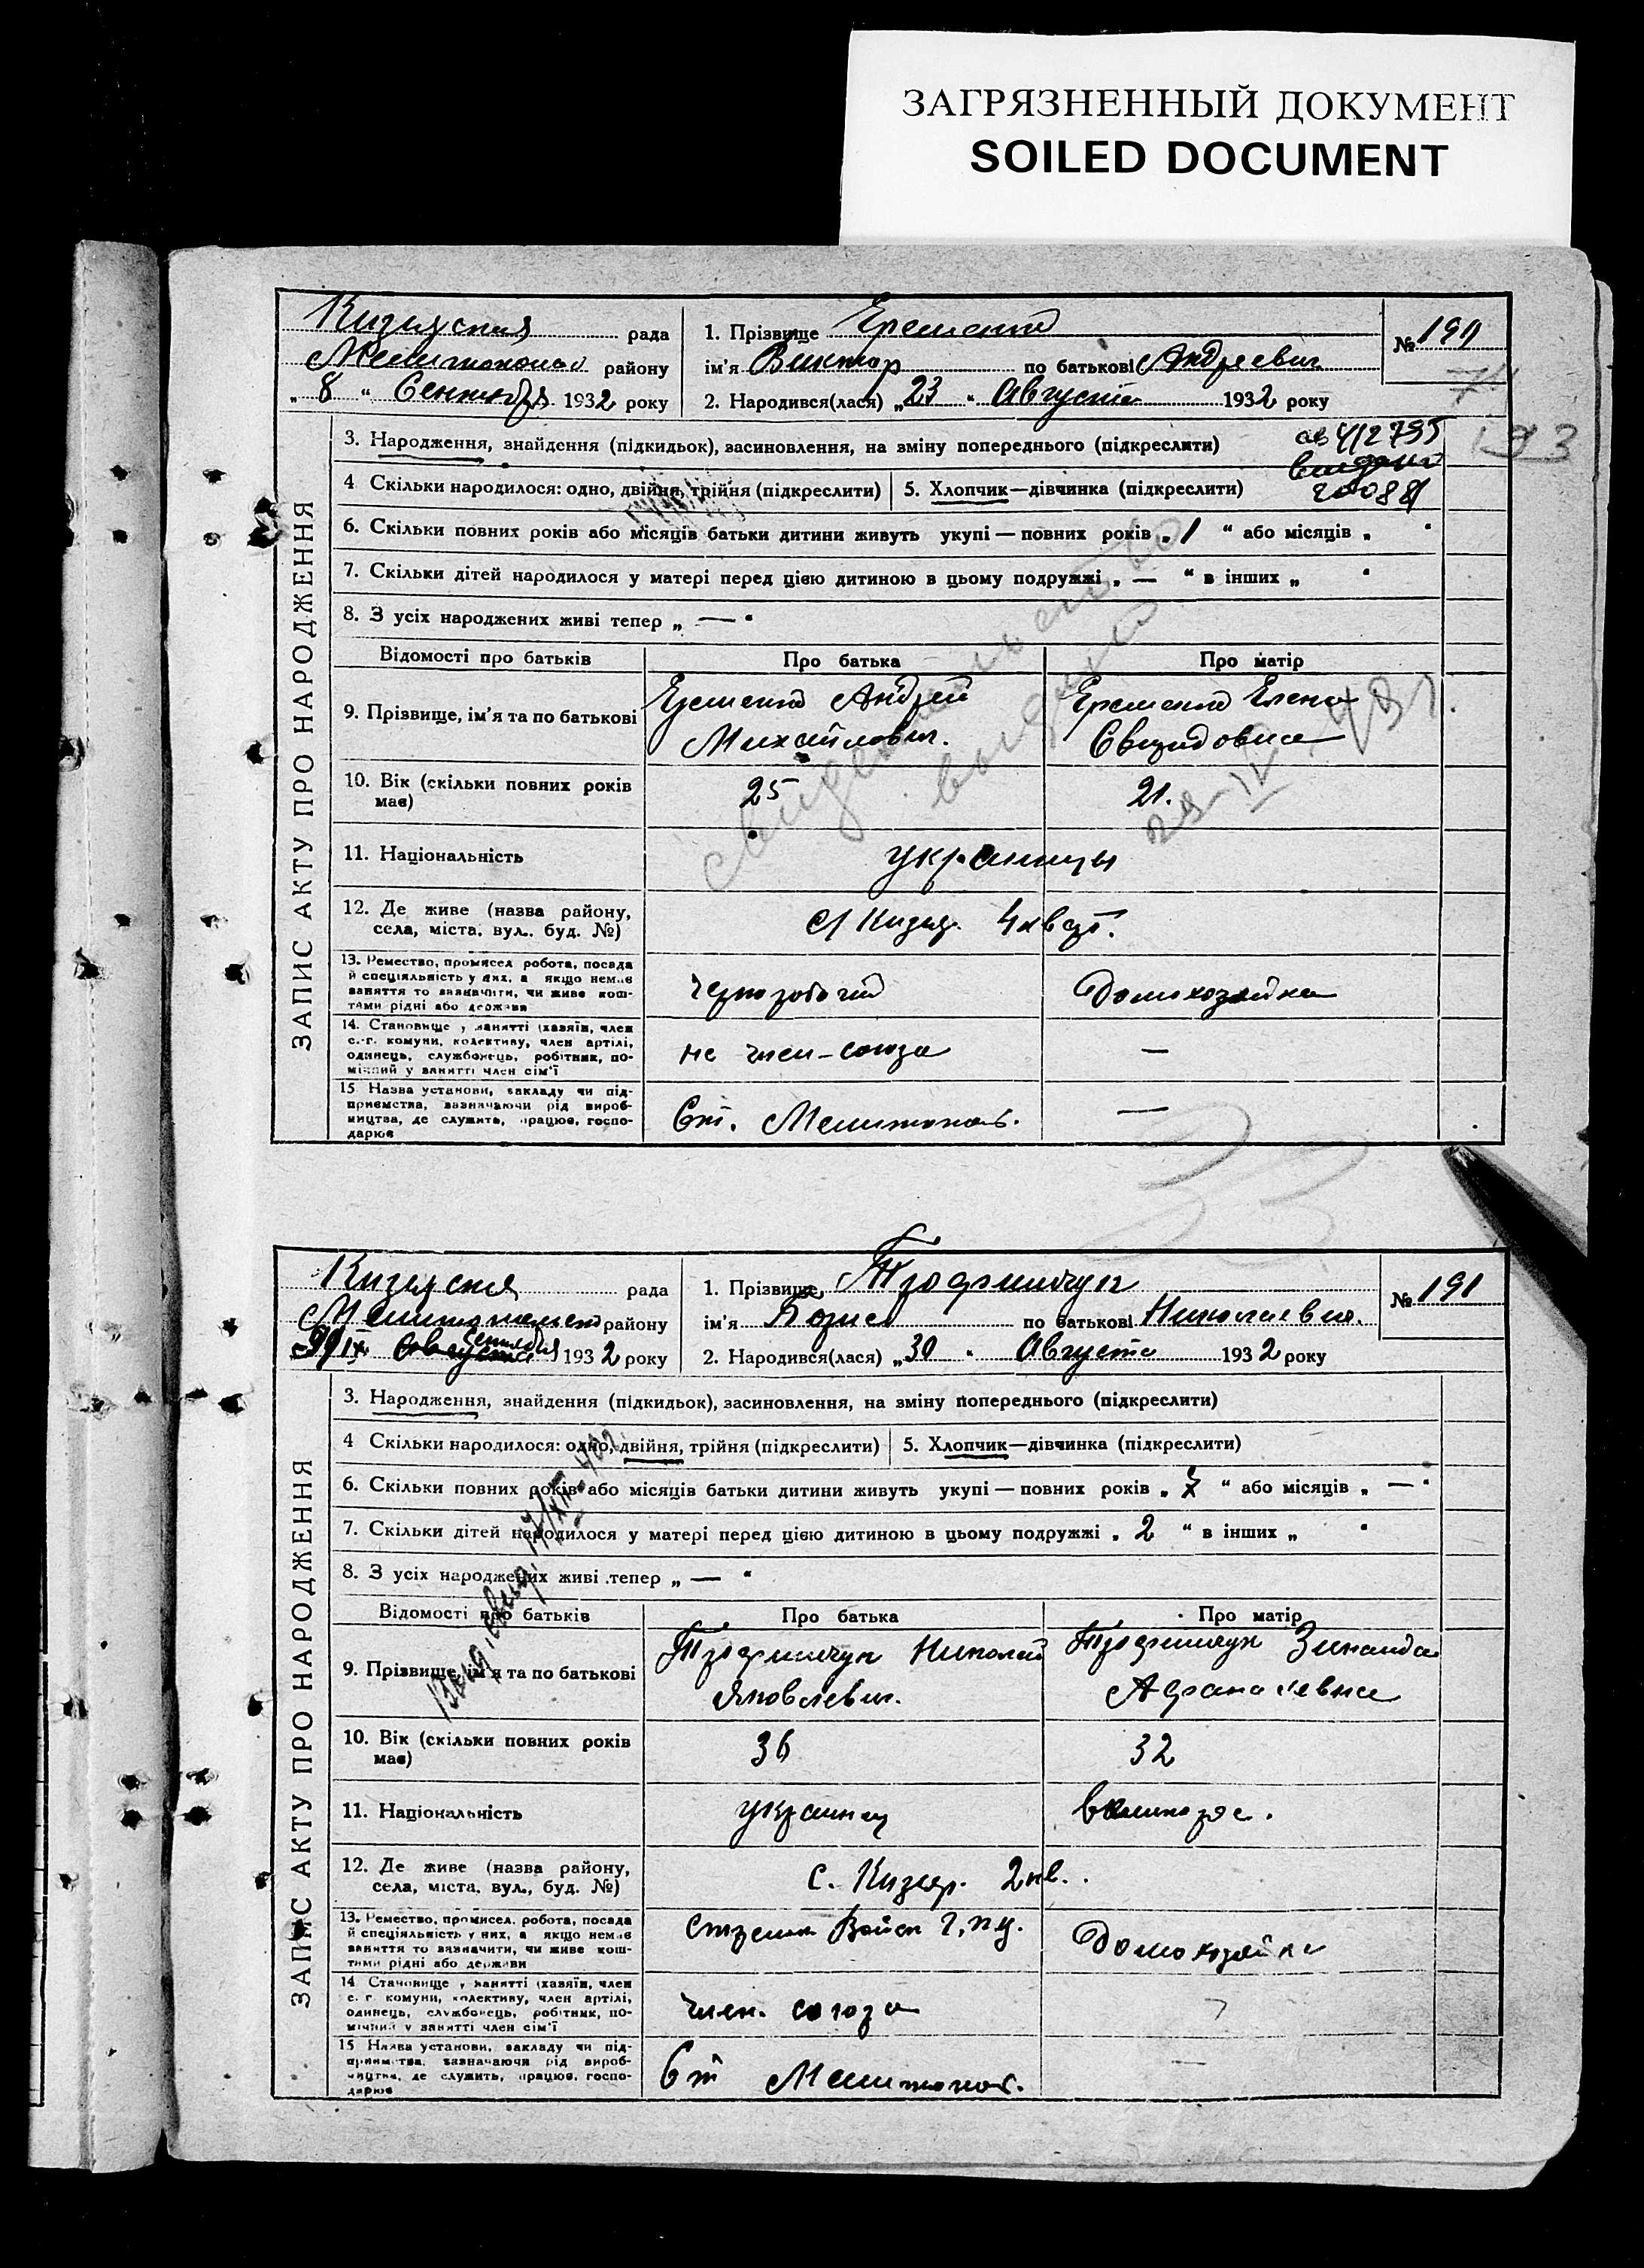 ЗАГРЯЗНЕННЫЙ ДОКУМЕНТ
SOILED DOCUMENT
ЗАПИС АКТУ ПРО НАРОДЖЕННЯ
Кизиярская рада
района району
„8“ Сентября 1932 року
1. Прізвище Еременко
ім'я Виктор по батькові Андреевич
2. Народився(лася) „23“ Августа 1932 року
№ 190
193
3. Народження, знайдення (підкидьок), засиновлення, на зміну попереднього (підкреслити)
4 Скільки народилося: одно, двійня, трійня (підкреслити) 5. Хлопчик—дівчинка (підкреслити)
6. Скільки повних років або місяців батьки дитини живуть укупі — повних років „1“ або місяців „ “
7. Скільки дітей народилося у матері перед цією дитиною в цьому подружжі „—“ в інших „ “
8. З усіх народжених живі тепер „—“
Відомості про батьків Про батька Про матір
9. Прізвище, ім'я та по батькові Еременко Андрей Михайлович. Еременко Елена
10. Вік (скільки повних років має) 25 21.
свидетельство
выдано
11. Національність украинцы
12. Де живе (назва району, села, міста, вул., буд. №) с/ Кизияр. 4 кварт.
13. Ремество, промисел робота, посада
й спеціяльність у них, а якщо немає
заняття то зазначити, чи живе кош-
тами рідні або держави
чернорабочий Домохозяйка
14. Становище у занятті (хазяїн, член
с.-г. комуни, колективу, член артілі,
одинець, службовець, робітник, по-
мічний у занятті член сім'ї
не член-союза —
15 Назва установи, закладу чи під-
приємства, зазначаючи рід вироб-
ництва, де служить, працює, госпо-
дарює
Ст. Мелитополь. —
ЗАПИС АКТУ ПРО НАРОДЖЕННЯ
Кизиярская рада
району
1932 року
1. Прізвище Трофимчук
ім'я Борис по батькові Николаевич.
2. Народився(лася) „30“ Августа 1932 року
№ 191
3. Народження, знайдення (підкидьок), засиновлення, на зміну попереднього (підкреслити)
4 Скільки народилося: одно, двійня, трійня (підкреслити) 5. Хлопчик—дівчинка (підкреслити)
6. Скільки повних років або місяців батьки дитини живуть укупі — повних років „7“ або місяців „—“
7. Скільки дітей народилося у матері перед цією дитиною в цьому подружжі „2“ в інших „ “
8. З усіх народжених живі тепер „—“
Відомості про батьків Про батька Про матір
9. Прізвище, ім'я та по батькові Трофимчук Николай Яковлевич. Трофимчук Зинаида Афанасевна
10. Вік (скільки повних років має) 36 32
11. Національність украинец великорус.
12. Де живе (назва району, села, міста, вул., буд. №) с. Кизияр. 2 кв.
13. Ремество, промисел, робота, посада
й спеціяльність у них, а якщо немає
заняття то зазначити, чи живе кош-
тами рідні або держави
стрелок Войск Г.П.У. Домохозяйка
14 Становище у занятті (хазяїн, член
с. г. комуни, колективу, член артілі,
одинець, службовець, робітник, по-
мічний у занятті член сім'ї
член. союза
15 Назва установи, закладу чи під-
приємства, зазначаючи рід вироб-
ництва, де служить, працює, госпо-
дарює
Ст Мелитополь. —